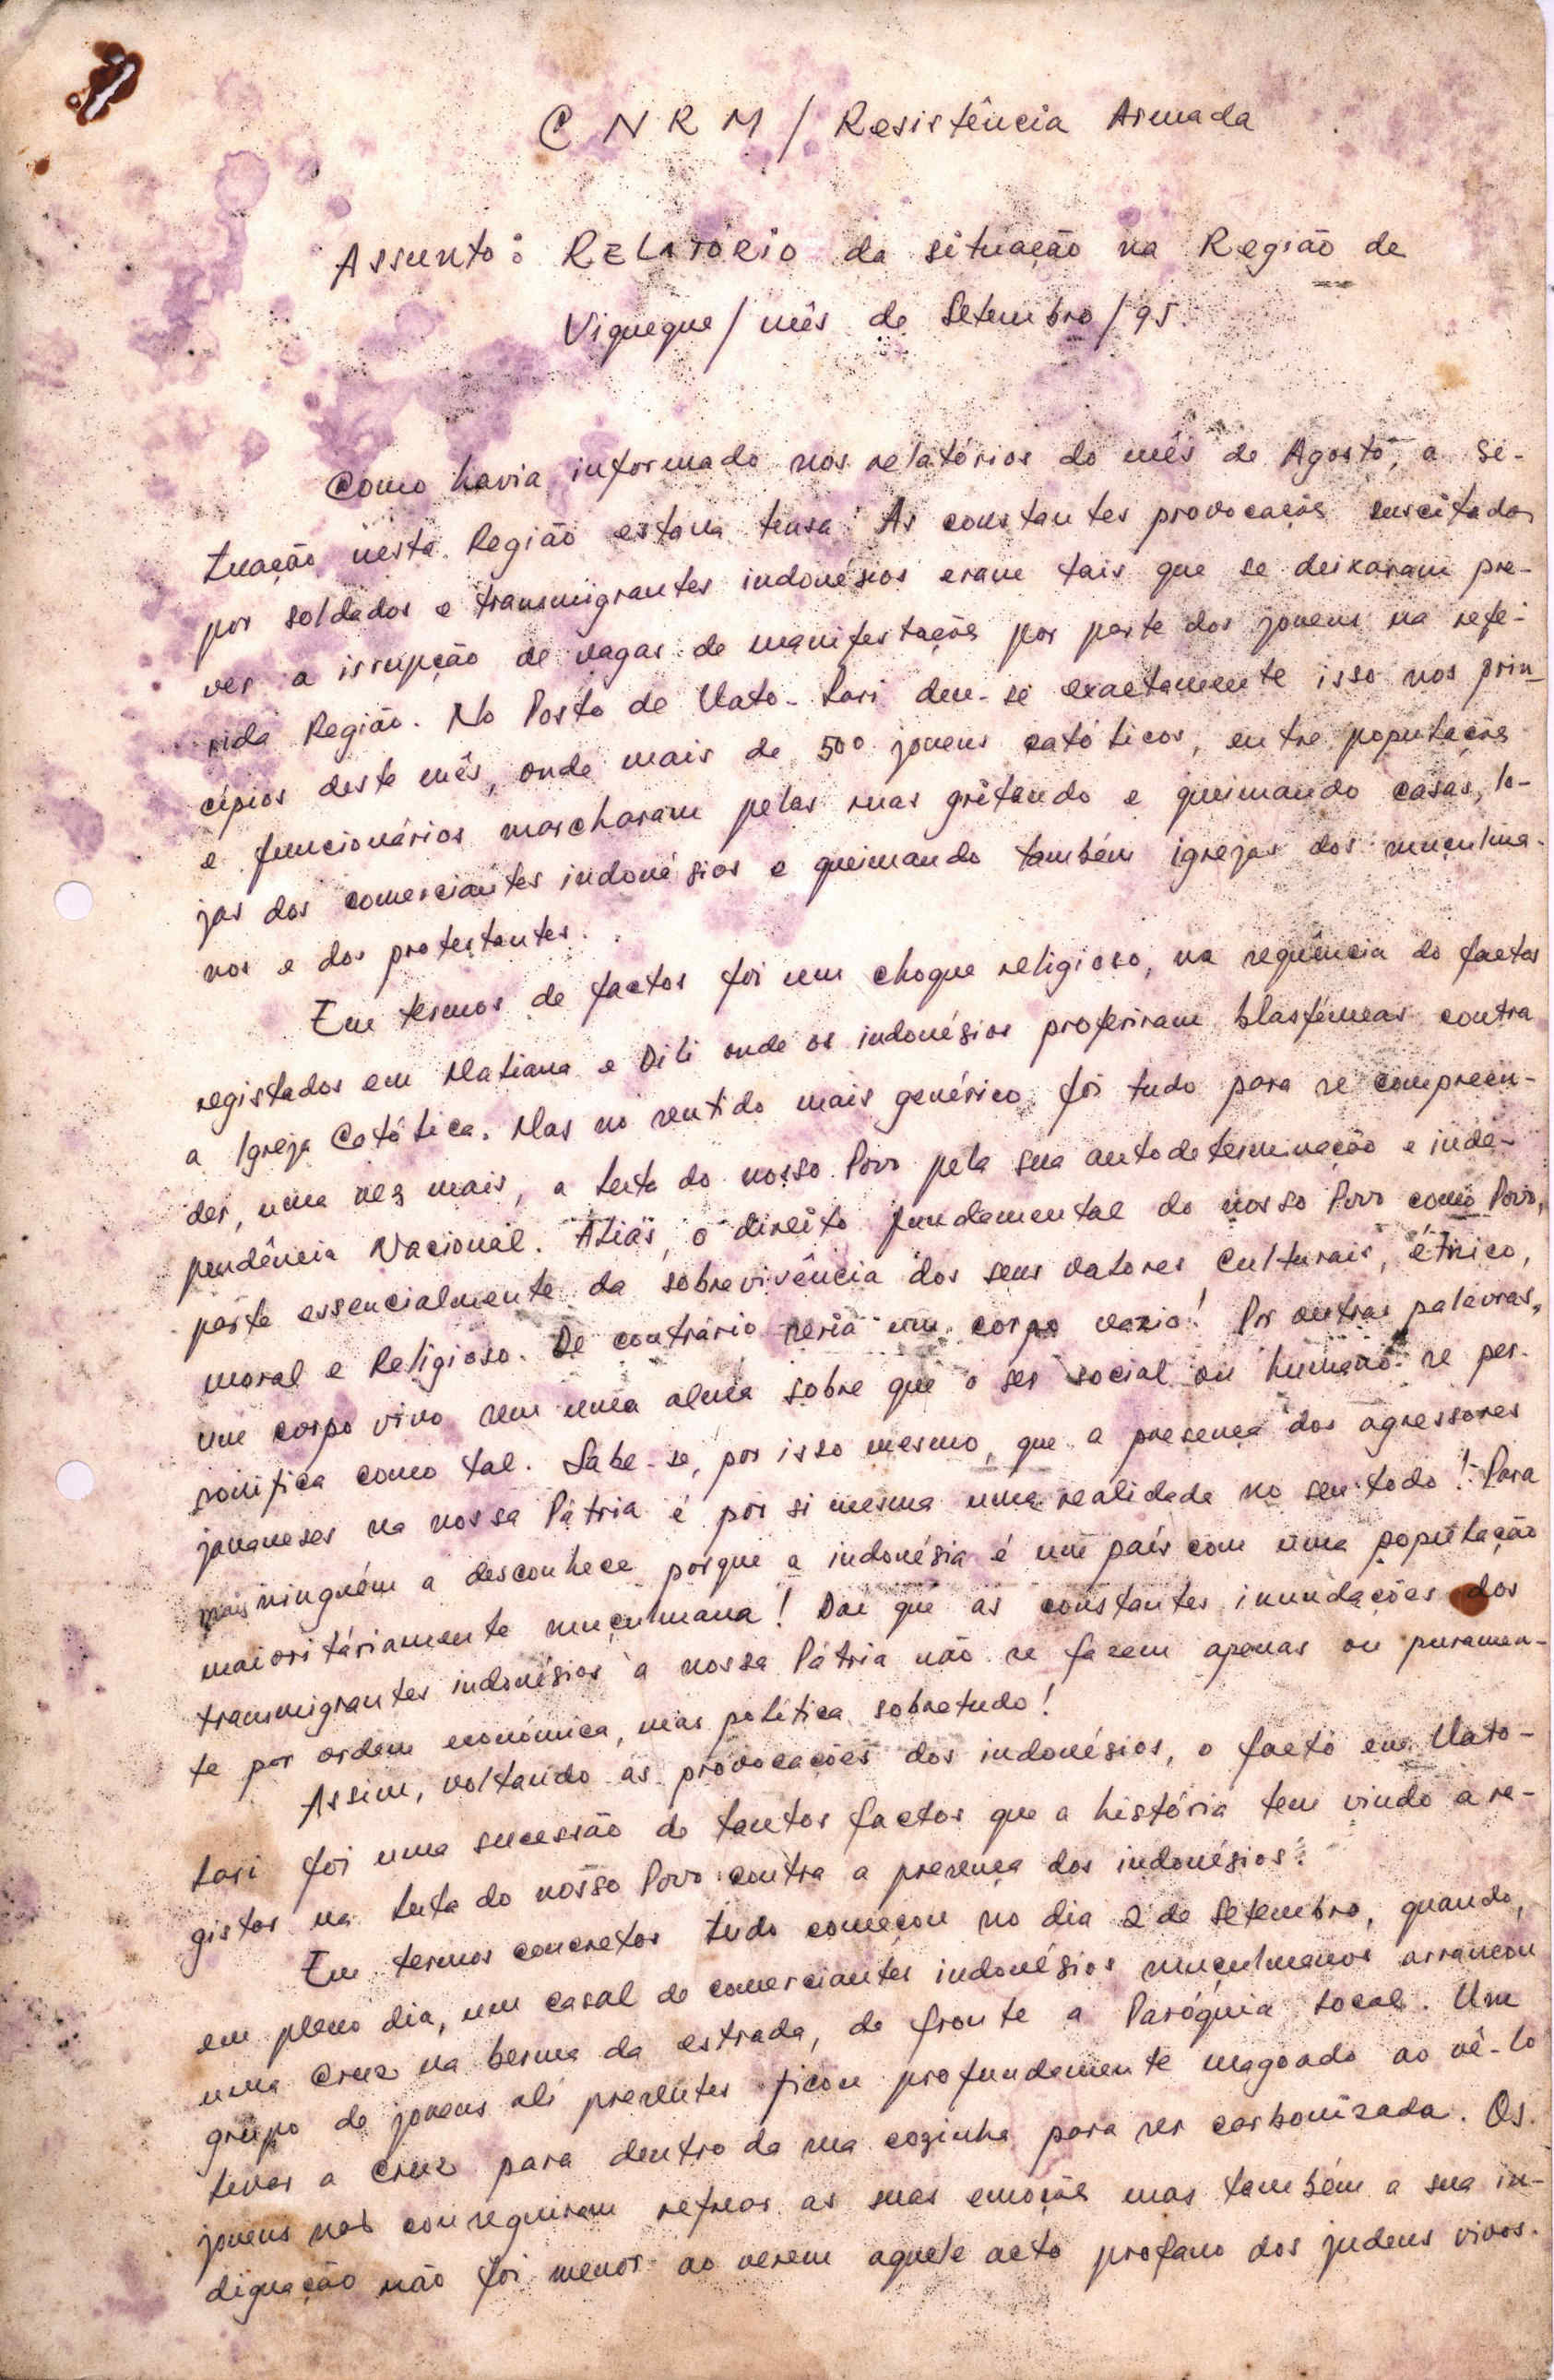 C N R M / Resistência Armada
Assunto: RELATÓRIO da situação na Região de
Viqueque / mês de Setembro / 95.
Como havia informado nos relatórios do mês de Agosto, a si-
tuação nesta Região estava tensa. As constantes provocações suscitadas
por soldados e transmigrantes indonésios eram tais que se deixaram pre-
ver a irrupção de vagas de manifestações por parte dos jovens na refe-
rida Região. No Posto de Uato-Lari deu-se exactamente isso nos prin-
cípios deste mês, onde mais de 500 jovens católicos, entre populações
e funcionários marcharam pelas ruas gritando e queimando casas, lo-
jas dos comerciantes indonésios e queimando também igrejas dos muçulma-
nos e dos protestantes.
Em termos de factos foi um choque religioso, na sequência do factos
registados em Maliana e Dili onde os indonésios proferiram blasfémeas contra
a Igreja Católica. Mas no sentido mais genérico foi tudo para se compreen-
der, uma vez mais, a luta do nosso Povo pela sua autodeterminação e inde-
pendência Nacional. Aliás, o direito fundamental do nosso Povo como Povo,
parte essencialmente da sobrevivência dos seus valores culturais, étnico,
moral e Religioso. De contrário seria um corpo vazio! Por outras palavras,
um corpo vivo sem uma alma sobre que o ser social ou humano se per-
sonifica como tal. Sabe-se, por isso mesmo, que a presença dos agressores
javaneses na nossa Pátria é por si mesma uma realidade no seu todo! Para
mais ninguém a desconhece porque a indonésia é um país com uma população
maioritáriamente muçulmana! Daí que as constantes inundações dos
transmigrantes indonésios à nossa Pátria não se fazem apenas ou puramen-
te por ordem económica, mas política sobretudo!
Assim, voltando às provocações dos indonésios, o facto em Uato-
Lari foi uma sucessão de tantos factos que a história tem vindo a re-
gistar na luta do nosso Povo contra a presença dos indonésios.
Em termos concretos tudo começou no dia 2 de Setembro, quando,
em pleno dia, um casal de comerciantes indonésios muçulmanos arrancou
uma Cruz na berma da estrada, de fronte a Paróquia local. Um
grupo de jovens ali presentes ficou profundamente magoado ao vê-lo
levar a cruz para dentro da sua cozinha para ser carbonizada. Os
jovens não conseguiram refrear as suas emoções mas também a sua in-
dignação não foi menor ao verem aquele acto profano dos judeus vivos.